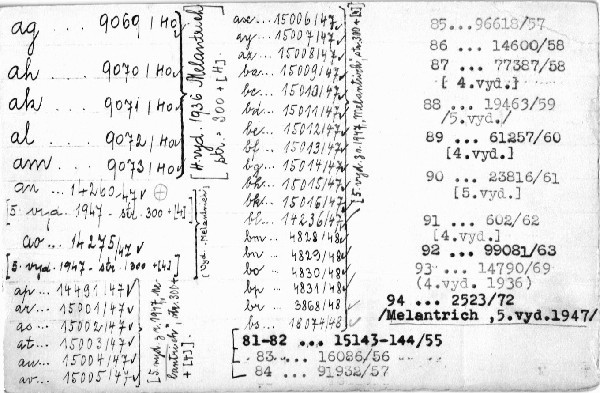 ag ... 9069/40
ah ... 9070/40
ak ... 9071/40
al ... 9072/40
am ... 9073/40
[4. vyd. 1936 Melantrich
str. 300 + [4].
an ... 14260/47
[5. vyd. 1947 - str. 300 + [4]
ao ... 14275/47
[5. vyd. 1947 - str. 300 + [4]
(vyd. Melantrich)
ap ... 14491/47
ar ... 15001/47
as ... 15002/47
at ... 15003/47
au ... 15004/47
av ... 15005/47
[5. vyd. z r. 1947, Me-
lantrich, str. 300 +
+ [4].
ax ... 15006/47
ay ... 15007/47
az ... 15008/47
ba ... 15009/47
bc ... 15010/47
bd ... 15011/47
be ... 15012/47
bf ... 15013/47
bg ... 15014/47
bh ... 15015/47
bk ... 15016/47
[5. vyd. z r. 1947, Melantrich, str. 300 + [4]
bl ... 14236/47
bm ... 4828/48
bn ... 4829/48
bo ... 4830/48
bp ... 4831/48
br ... 3868/48
bs ... 18074/48
81-82 ... 15143-144/55
83 ... 16086/56
84 ... 91932/57
85...96618/57
86 ... 14600/58
87 ... 77387/58
[ 4.vyd.]
88 ... 19463/59
/5.vyd./
89 ... 61257/60
[4.vyd.]
90 ... 23816/61
[5.vyd.]
91 ... 602/62
[4.vyd.]
92 ... 99081/63
93 ... 14790/69
(4.vyd. 1936)
94 ... 2523/72
/Melantrich ,5.vyd.1947/